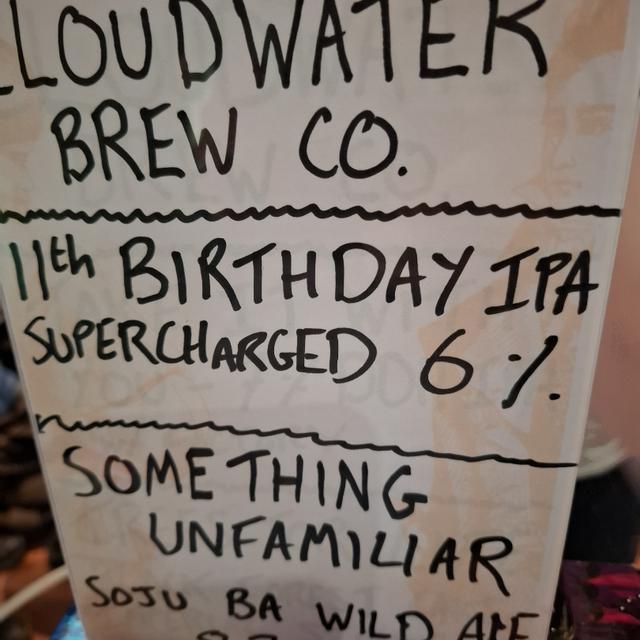 LOUDWATER
BREW CO.
11th BIRTHDAY IPA
SUPERCHARGED 6%.
SOMETHING
UNFAMILIAR
SOJU BA WILD ALE